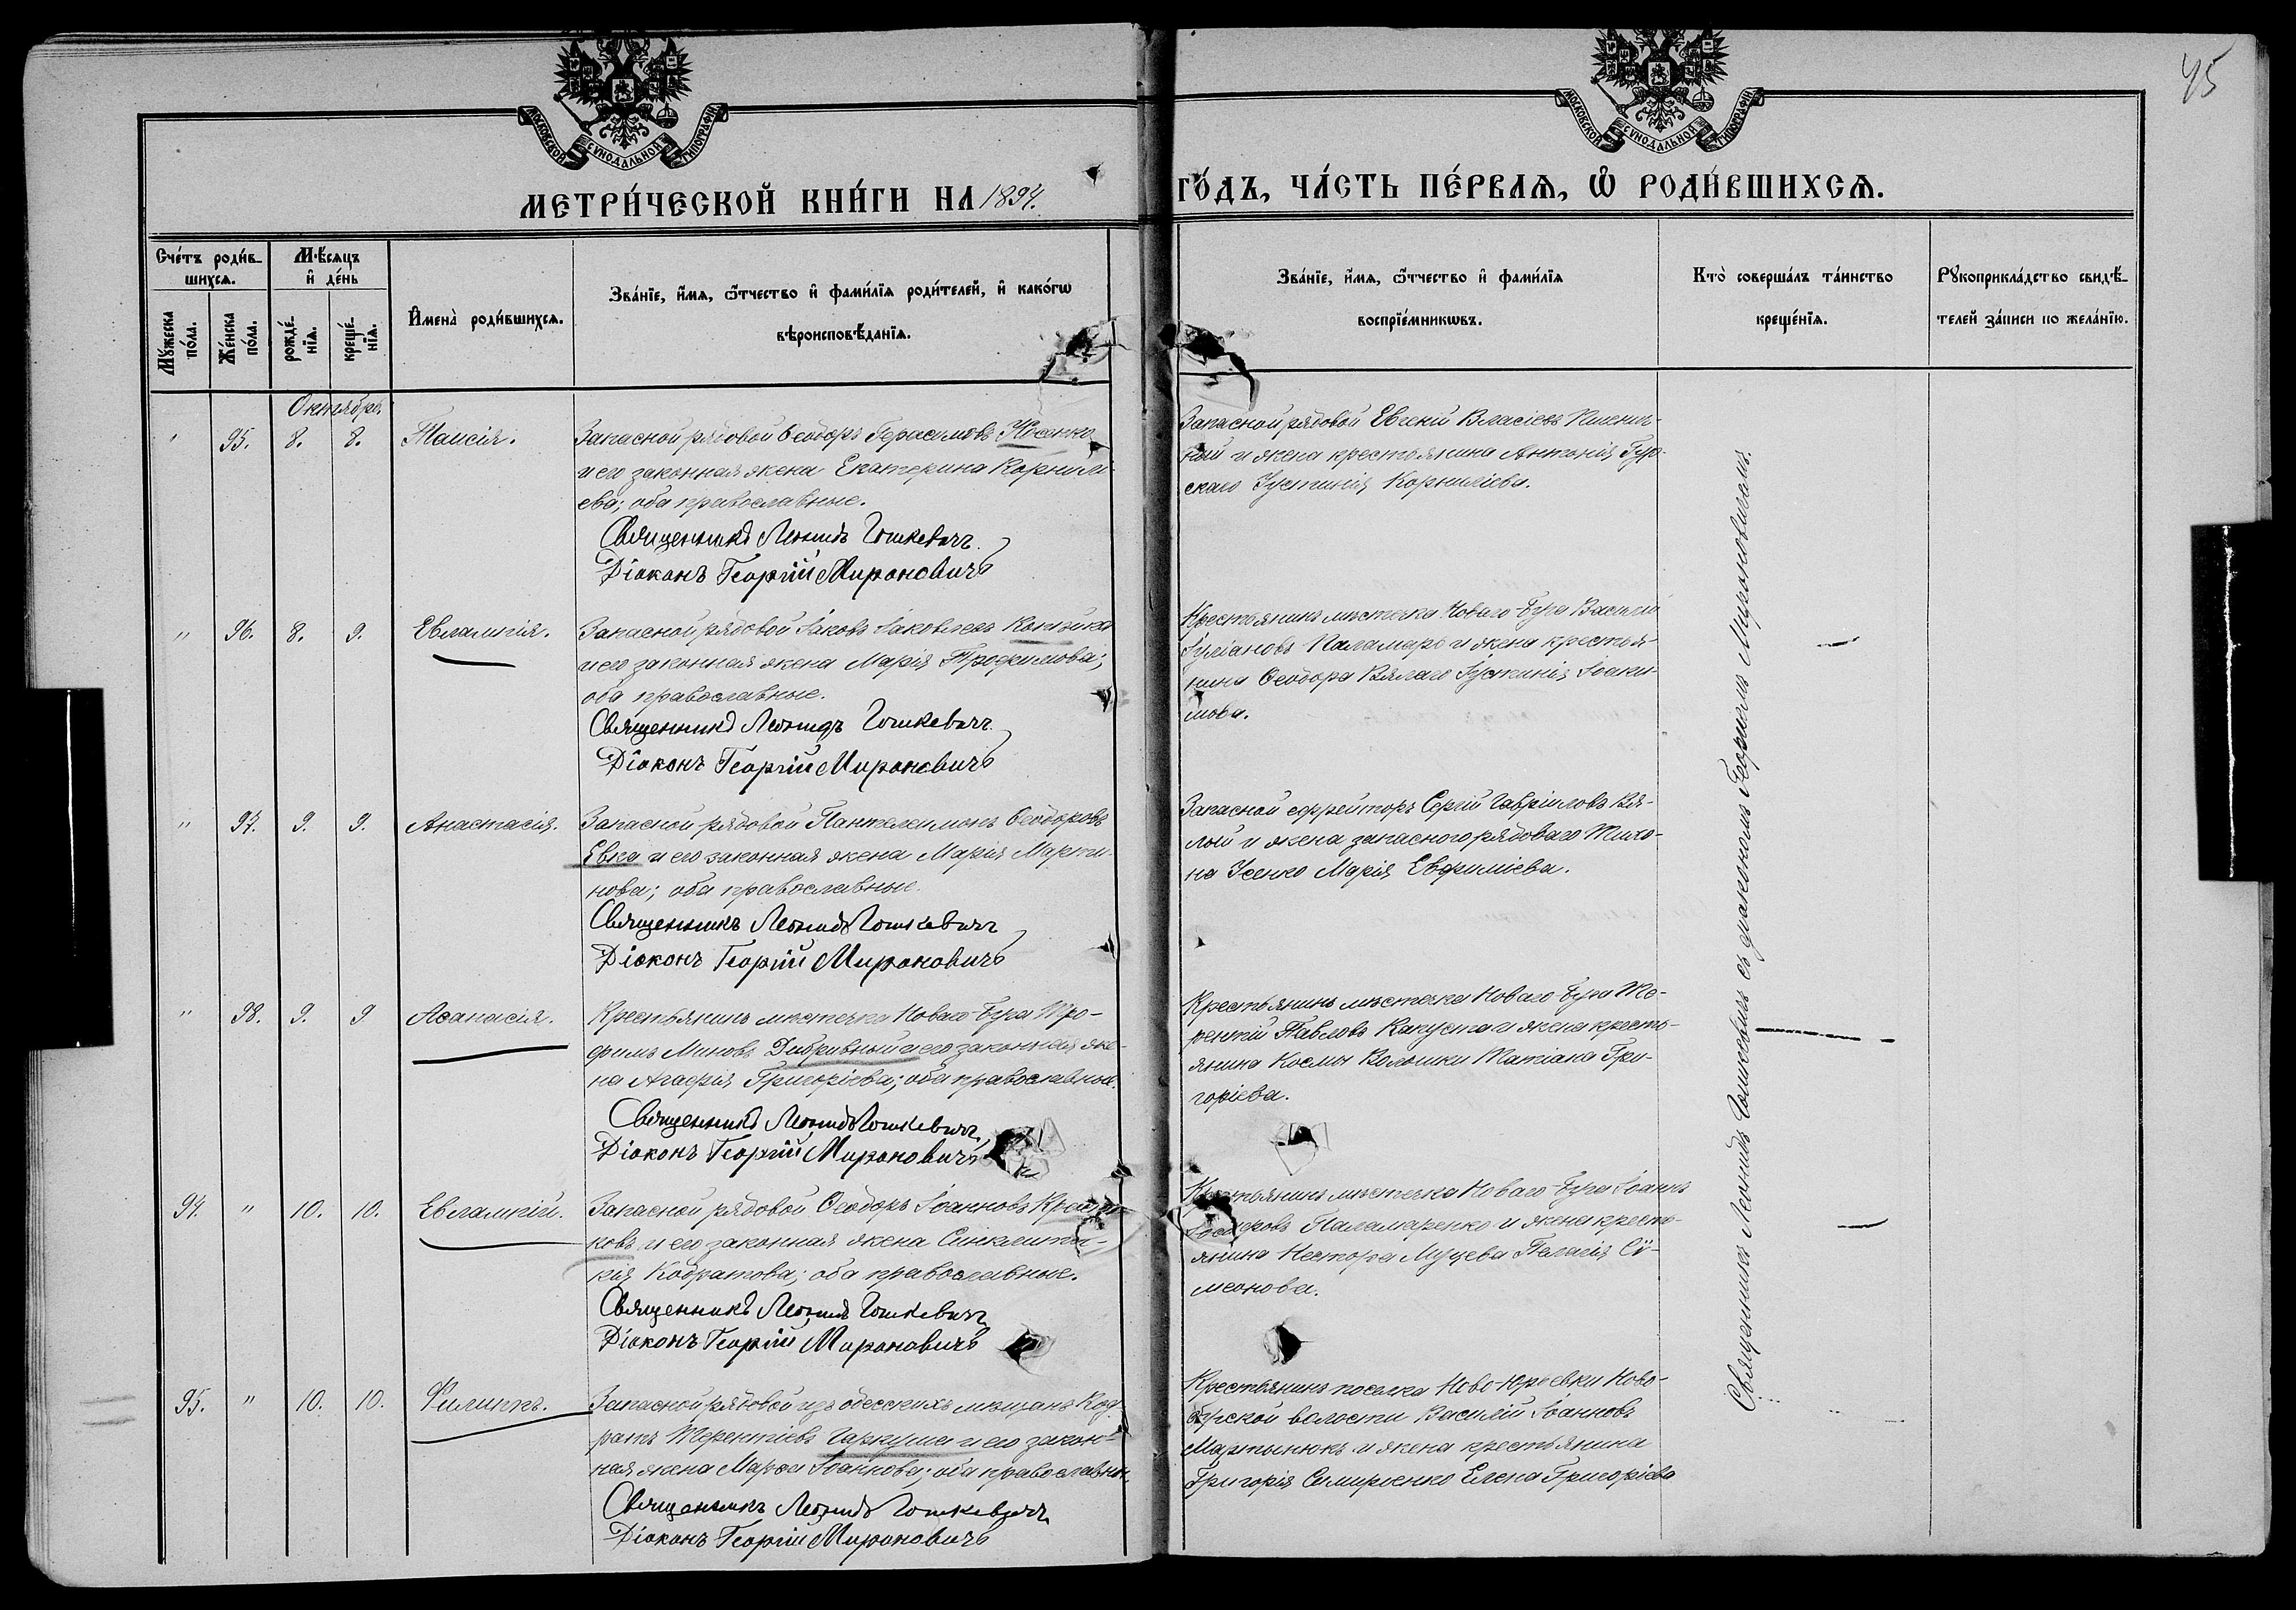 45
МОСКОВСКОЙ СУНОДАЛЬНОЙ ТИПОГРАФІИ
МОСКОВСКОЙ СУНОДАЛЬНОЙ ТИПОГРАФІИ
МЕТРИ́ЧЕСКОЙ КНИ́ГИ НА 1894. ГО́ДЪ, ЧА́СТЬ ПЕ́РВАѦ, Ѡ҆ РОДИ́ВШИХСѦ.
Сче́тъ роди́в-
шихсѧ.
Мꙋ́жеска по́ла.
Же́нска по́ла.
Мѣ́сѧцъ
и҆ де́нь
рожде́-нїѧ.
креще́-нїѧ.
И҆мена̀ роди́вшихсѧ.
Зва́нїе, и҆́мѧ, ѻ҆́тчество и҆ фами́лїѧ роди́телей, и҆ како́гѡ
вѣроисповѣ́данїѧ.
Зва́нїе, и҆́мѧ, ѻ҆́тчество и҆ фами́лїѧ
воспрїе́мникѡвъ.
Кто̀ соверша́лъ та́инство
креще́нїѧ.
Рꙋкоприкла́дство свидѣ́-
телей за́писи по жела́нїю.
Октябрь
" 95. 8. 8. Таисія.
Запасной рядовой Ѳеодоръ Герасимовъ Носенко
и его законная жена Екатерина Корнили-
ева; оба православные.
Священникъ Леонидъ Гошкевичъ.
Діаконъ Георгій Мироновичъ
Запасной рядовой Евгеній Власіевъ Пшенич-
ный и жена крестьянина Антонія Гур-
скаго Іустинія Корниліева.
" 96. 8. 9. Евлампія.
Запасной рядовой Іаковъ Іаковлевъ
и его законная жена Марія Трофимова;
оба православные.
Священникъ Леонидъ Гошкевичъ.
Діаконъ Георгій Мироновичъ
Крестьянинъ мѣстечка Новаго-Буга Василій
Іуліановъ Паламарь и жена крестья-
нина Ѳеодора Вялаго Іустинія Іоаки-
мова.
" 97. 9. 9. Анастасія.
Запасной рядовой Пантелеимонъ Ѳеодоровъ
Евко и его законная жена Марія Марти-
нова; оба православные.
Священникъ Леонидъ Гошкевичъ
Діаконъ Георгій Мироновичъ
Запасной ефрейторъ Сергій Гавріиловъ Вя-
лый и жена запасного рядоваго Тихо-
на Усенко Марія Евфиміева.
" 98. 9. 9 Аѳанасія.
Крестьянинъ мѣстечка Новаго-Буга Тро-
фимъ Миновъ Дибривный и его законная же-
на Агафія Григоріева; оба православные.
Священникъ Леонидъ Гошкевичъ.
Діаконъ Георгій Мироновичъ
Крестьянинъ мѣстечка Новаго-Буга Те-
рентій Павловъ Капуста и жена кресть-
янина Космы Волошки Татіана Гри-
горіева.
94. " 10. 10. Евлампій.
Запасной рядовой Ѳеодоръ Іоанновъ
ковъ и его законная жена Синклити-
кія Кодратова; оба православные.
Священникъ Леонидъ Гошкевичъ
Діаконъ Георгій Мироновичъ
Крестьянинъ мѣстечка Новаго-Буга Іоаннъ
Паламаренко и жена кресть-
янина Нестора Пелагія Сѵ-
меонова.
95. " 10. 10. Филиппъ.
Запасной рядовой изъ одесскихъ мѣщанъ Код-
ратъ Терентіевъ Гаркуша и его закон-
ная жена Марѳа Іоаннова; оба православн.
Священникъ Леонидъ Гошкевичъ
Діаконъ Георгій Мироновичъ
Крестьянинъ поселка Ново-Юрьевки Ново-
бугской волости Василій Іоанновъ
Мартынюкъ и жена крестьянина
Григорія Елена Григоріева
Священникъ Леонидъ Гошкевичъ съ діакономъ Георгіемъ Мироновичемъ.